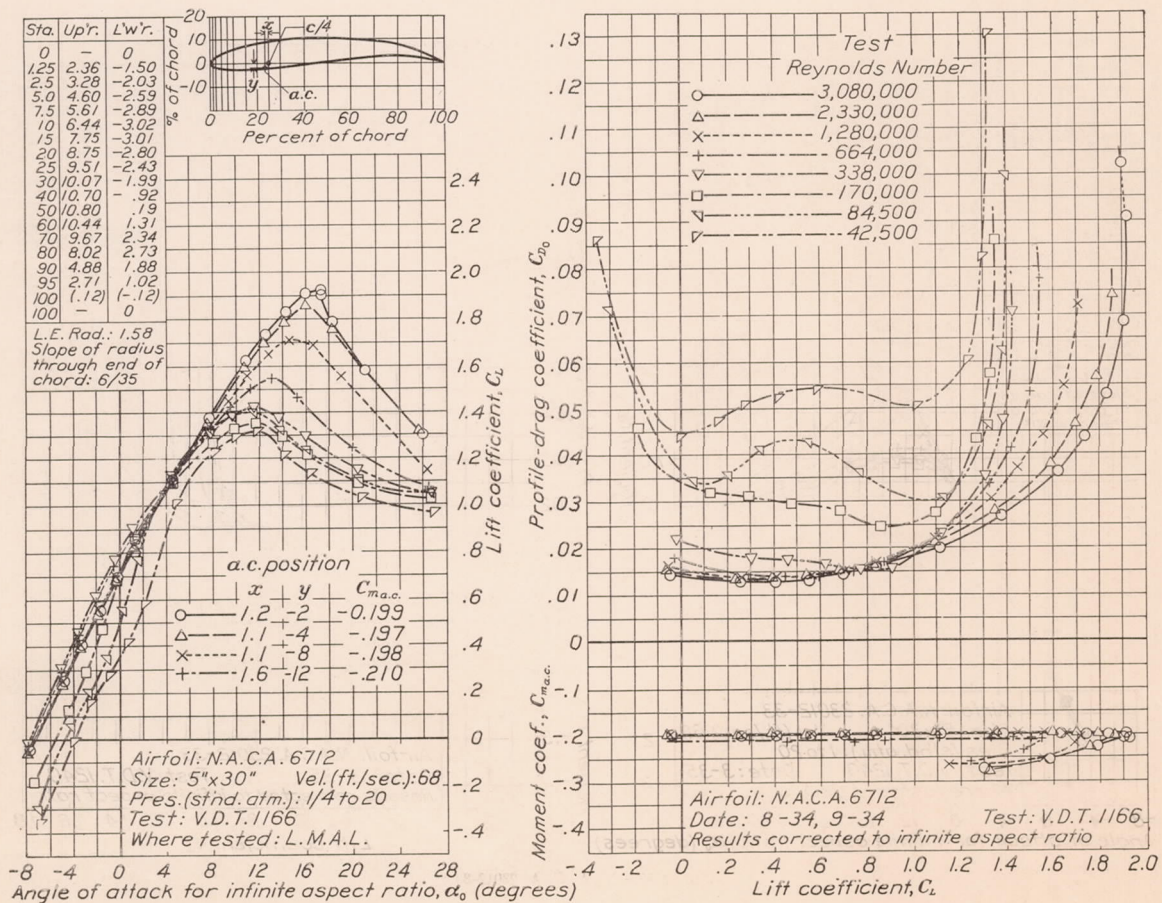 Sta. Up'r. L'w'r.
0 – 0
1.25 2.36 -1.50
2.5 3.28 -2.03
5.0 4.60 -2.59
7.5 5.61 -2.89
10 6.44 -3.02
15 7.75 -3.01
20 8.75 -2.80
25 9.51 -2.43
30 10.07 -1.99
40 10.70 - .92
50 10.80 .19
60 10.44 1.31
70 9.67 2.34
80 8.02 2.73
90 4.88 1.88
95 2.71 1.02
100 (.12) (-.12)
100 – 0
L.E. Rad.: 1.58
Slope of radius
through end of
chord: 6/35
% of chord
20
10
0
-10
x
c/4
y
a.c.
0 20 40 60 80 100
Per cent of chord
2.4
2.2
2.0
1.8
1.6
1.4
1.2
1.0
.8
.6
.4
.2
0
-.2
-.4
Lift coefficient, C_L
a.c. position
x y C_m a.c.
1.2 -2 -0.199
1.1 -4 -.197
1.1 -8 -.198
1.6 -12 -.210
Airfoil: N.A.C.A. 6712
Size: 5"x30" Vel. (ft./sec.): 68
Pres. (stnd. atm.): 1/4 to 20
Test: V.D.T. 1166
Where tested: L.M.A.L.
-8 -4 0 4 8 12 16 20 24 28
Angle of attack for infinite aspect ratio, α₀ (degrees)
Test
Reynolds Number
3,080,000
2,330,000
1,280,000
664,000
338,000
170,000
84,500
42,500
.13
.12
.11
.10
.09
.08
.07
.06
.05
.04
.03
.02
.01
0
Profile-drag coefficient, C_D₀
-.1
-.2
-.3
-.4
Moment coef., C_m a.c.
Airfoil: N.A.C.A. 6712
Date: 8-34, 9-34 Test: V.D.T. 1166
Results corrected to infinite aspect ratio
-.4 -.2 0 .2 .4 .6 .8 1.0 1.2 1.4 1.6 1.8 2.0
Lift coefficient, C_L